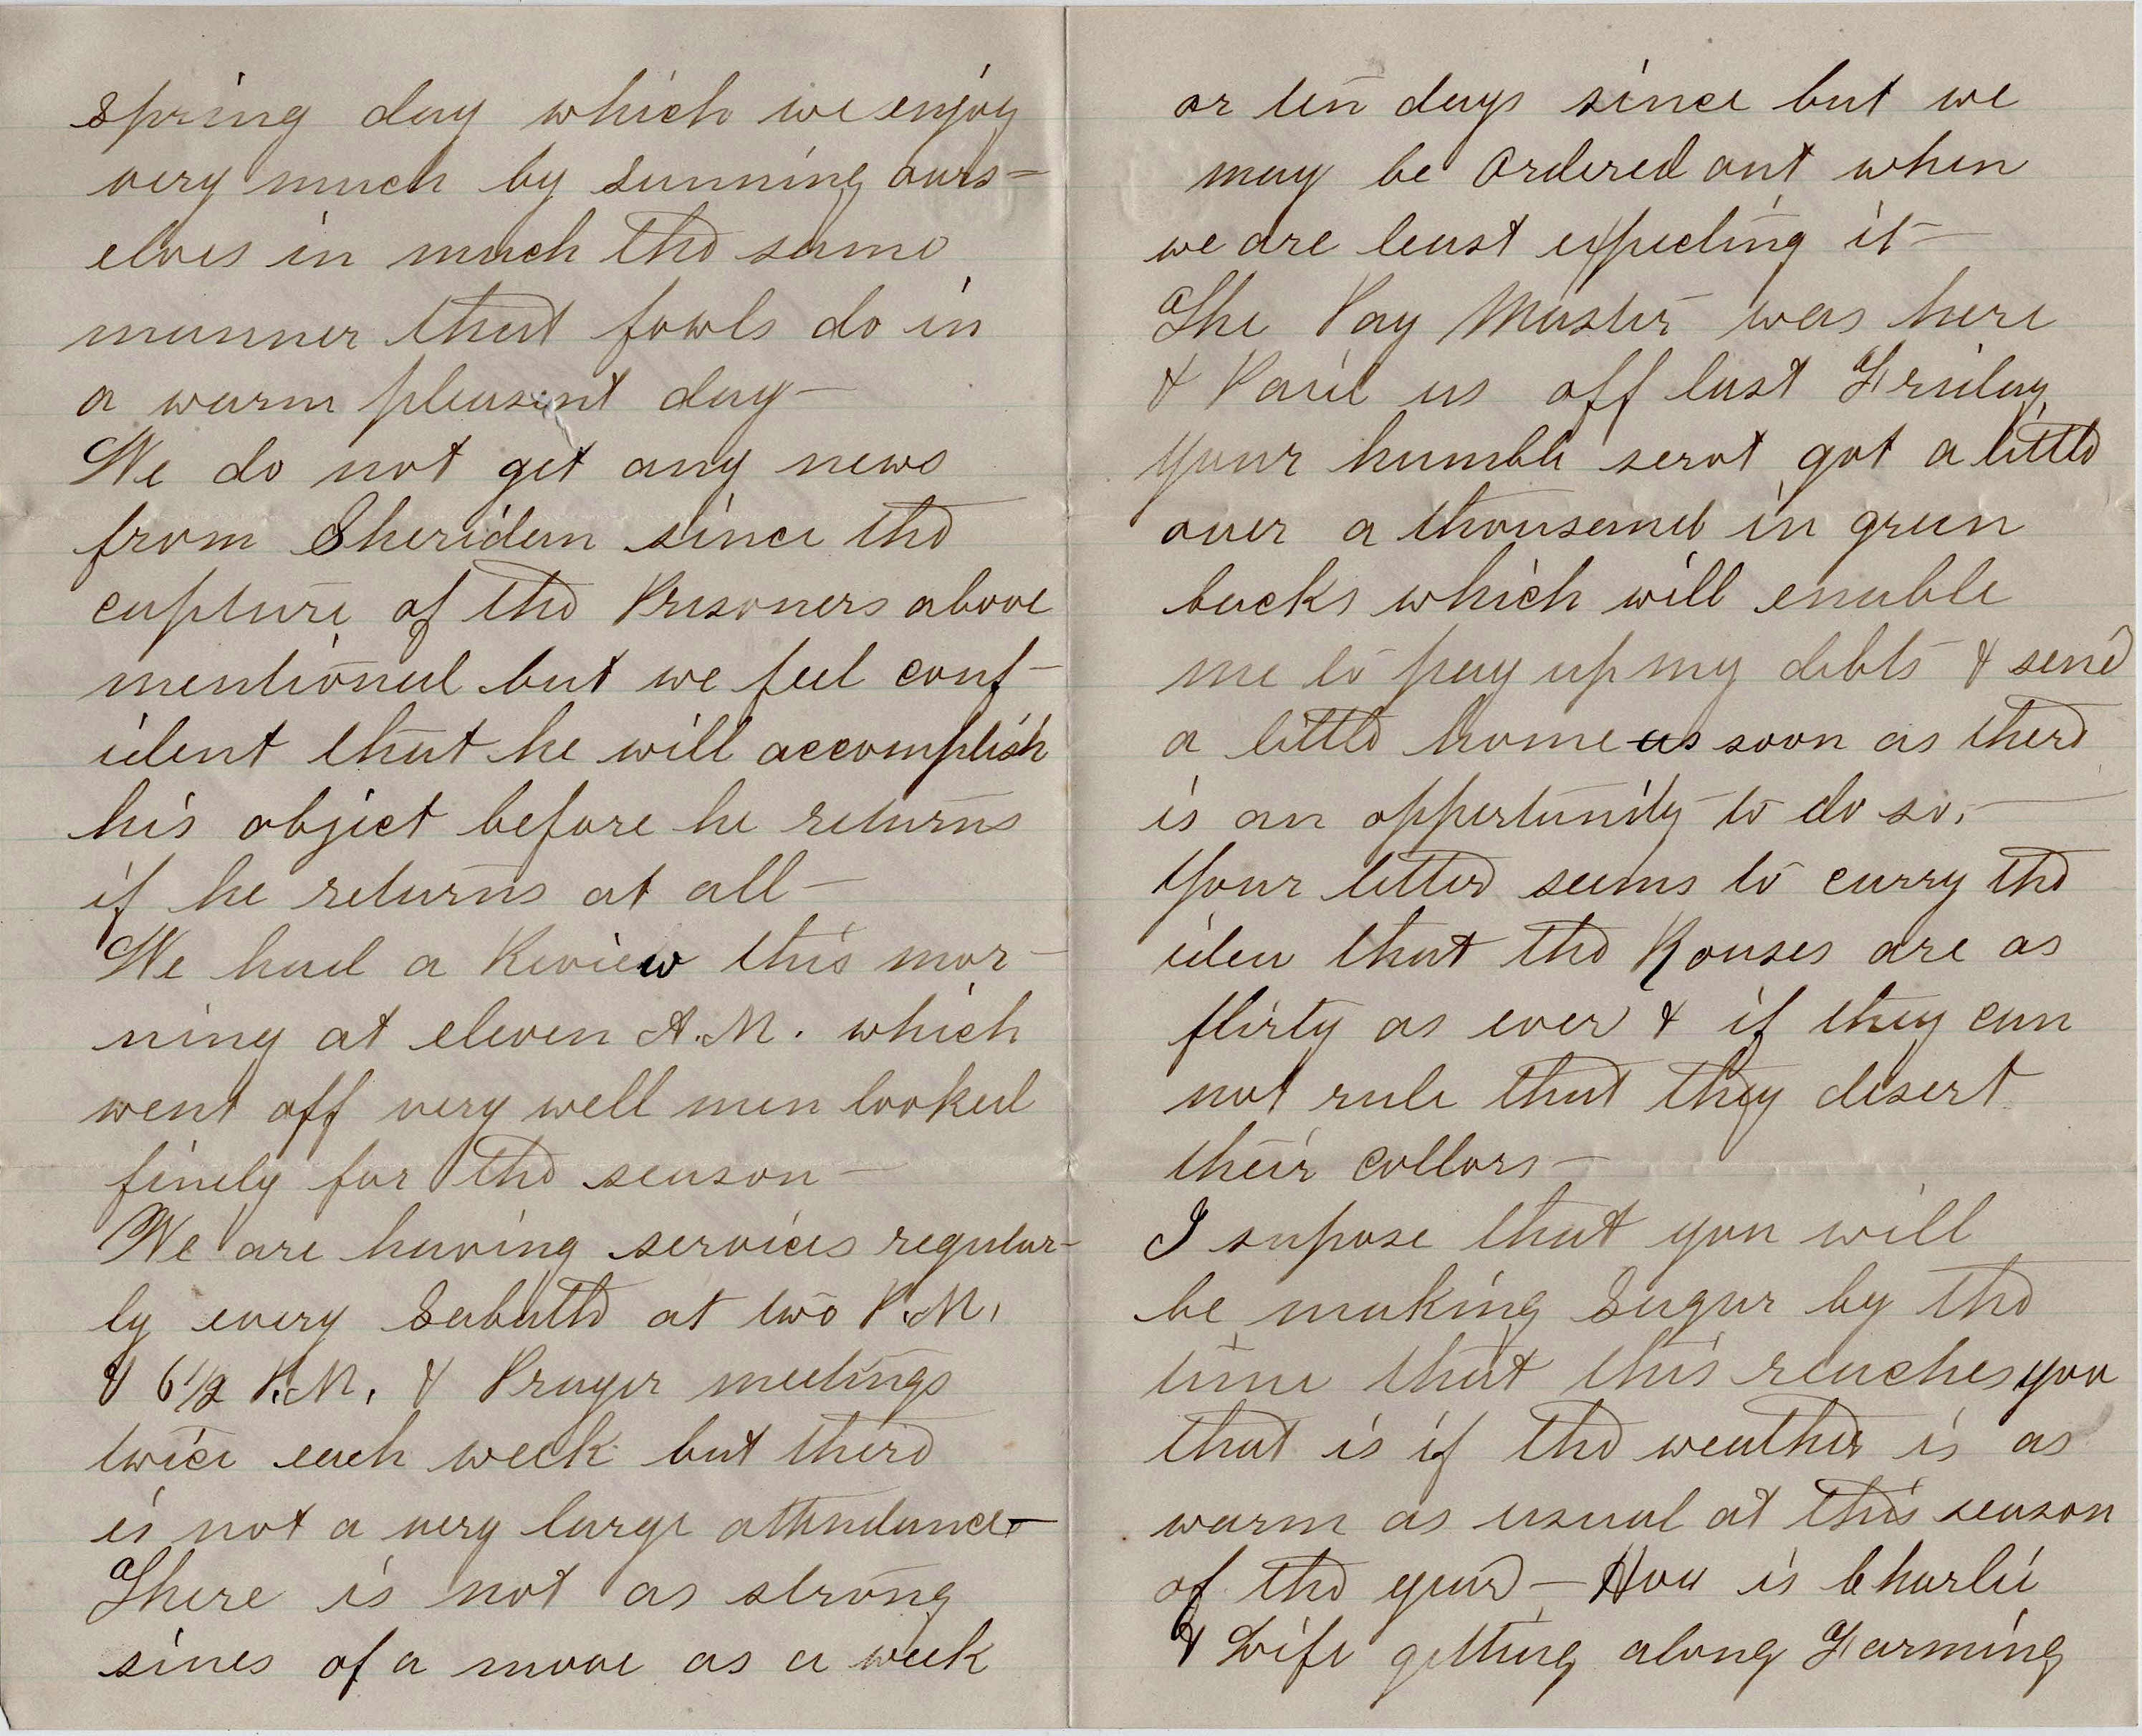 spring day which we enjoy
very much by sunning ours-
elves in much the same
manner that fowls do in
a warm pleasent day—
We do not get any news
from Sheridan since the
capture of the Prisoners above
mentioned but we feel conf-
ident that he will accomplish
his object before he returns
if he returns at all—
We had a Review this mor-
ning at eleven A.M. which
went off very well men looked
finely for the season—
We are having services regular-
ly every Sabath at two P.M.
& 6 1/2 P.M. & Prayer meetings
twice each week but there
is not a very large attendance—
There is not as strong
sines of a move as a week
or ten days since but we
may be ordered out when
we are least expecting it—
The Pay Master was here
& Paid us off last Friday
your humble servt got a little
over a thousand in green
backs which will enable
me to pay up my debts & send
a little home as soon as there
is an oppertunity to do so.—
Your letter seems to carry the
idea that the Rouses are as
flirty as ever & if they can
not rule that they desert
their collors—
I supose that you will
be making Sugar by the
time that this reaches you
that is if the weather is as
warm as usual at this season
of the year— How is Charlie
& Wife getting along Farming